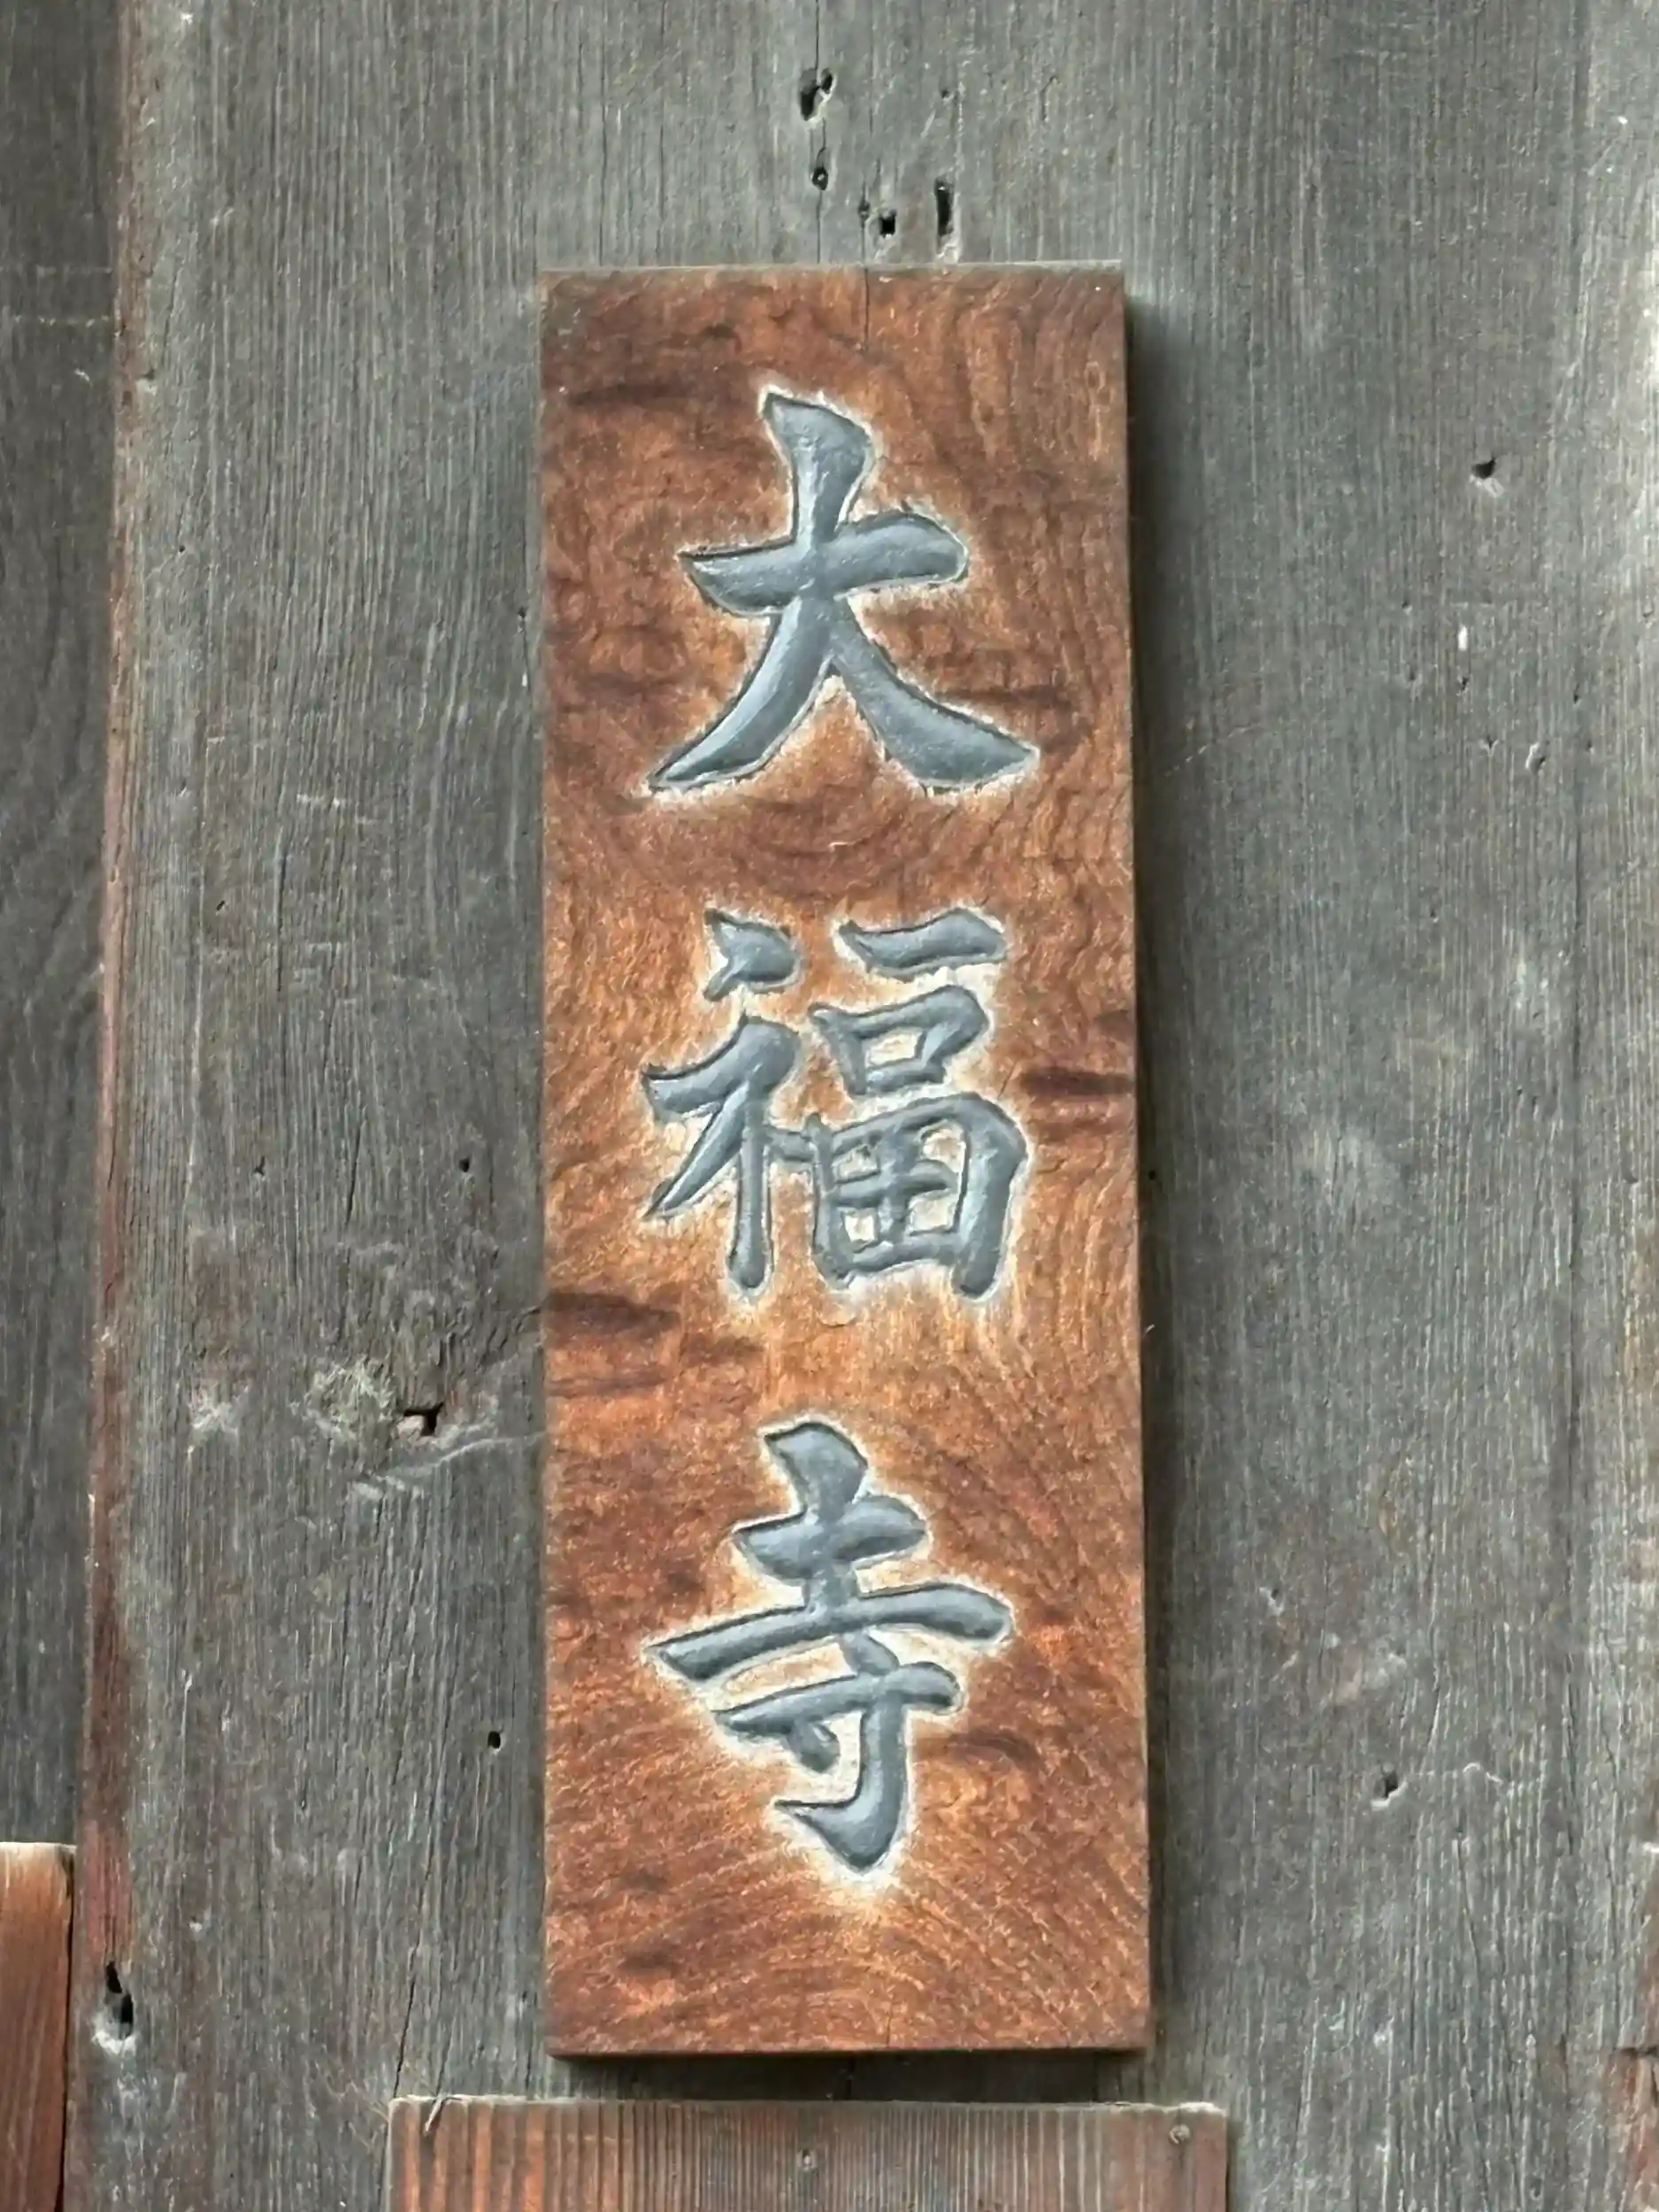 大福寺